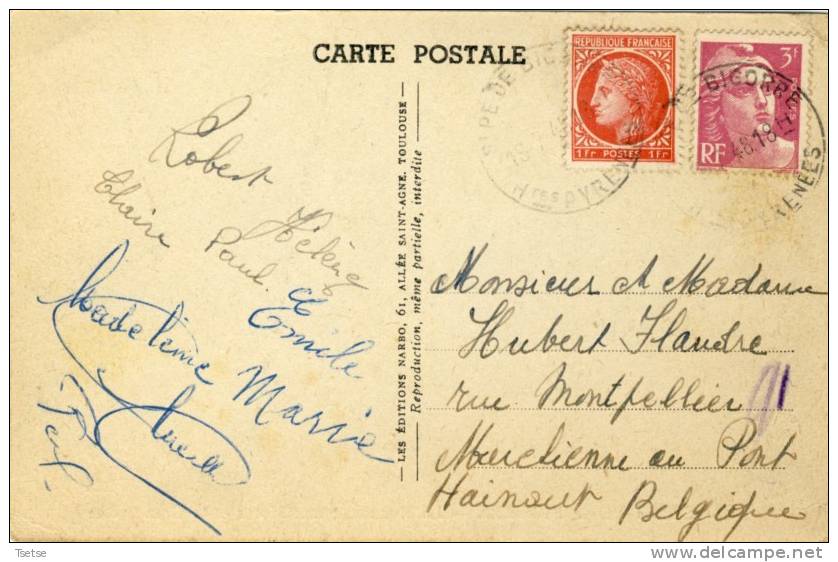 CARTE POSTALE
RÉPUBLIQUE FRANÇAISE
1Fr POSTES 1Fr
3F
RF
PIC DE BIGORRE
Htes PYRENEES
BIGORRE
48.18 H
PYRENEES
Robert
Claire
Hélène
Paul
&
Emile
Madeleine
Marie
LES ÉDITIONS NARBO, 61, ALLÉE SAINT-AGNE. TOULOUSE
Reproduction, même partielle, interdite
Monsieur et Madame
Hubert Flandre
rue Montpellier
Marchienne au Pont
Hainaut Belgique
Tsetse
delcampe.net